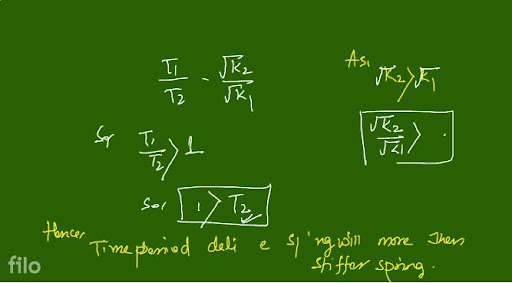 T₁/T₂ - √K₂/√K₁
As, √K₂ > √K₁
So, T₁/T₂ > 1
√K₂/√K₁ > .
So, 1 > T₂
Hence,
Time period deli e sp ing will more then
stiffer spring.
filo